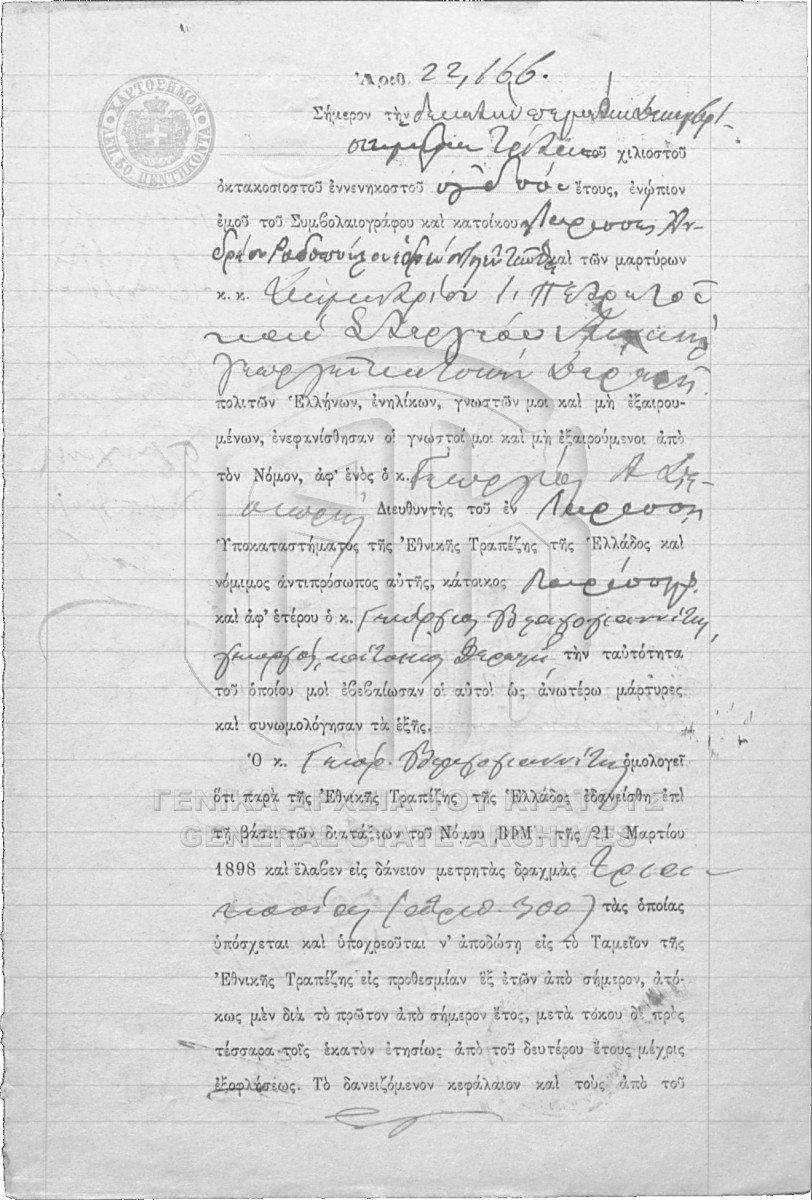 ΧΑΡΤΟΣΗΜΟΝ
ΛΕΠ. 50 ΠΕΝΤΗΚΟΝΤΑ
Ἀριθ. 22,166.
Σήμερον τὴν
τοῦ χιλιοστοῦ
ὀκτακοσιοστοῦ ἐννενηκοστοῦ ὀγδόου ἔτους, ἐνώπιον
ἐμοῦ τοῦ Συμβολαιογράφου καὶ κατοίκου Λαρίσσης Ἀν-
δρέου Ροδοπούλου καὶ τῶν μαρτύρων
κ. κ. Δημητρίου
καὶ Στεργίου
πολιτῶν Ἑλλήνων, ἐνηλίκων, γνωστῶν μοι καὶ μὴ ἐξαιρου-
μένων, ἐνεφανίσθησαν οἱ γνωστοί μοι καὶ μὴ ἐξαιρούμενοι ἀπὸ
τὸν Νόμον, ἀφ' ἑνὸς ὁ κ. Γεώργιος Α
Διευθυντὴς τοῦ ἐν Λαρίσσῃ
Ὑποκαταστήματος τῆς Ἐθνικῆς Τραπέζης τῆς Ἑλλάδος καὶ
νόμιμος ἀντιπρόσωπος αὐτῆς, κάτοικος
καὶ ἀφ' ἑτέρου ὁ κ. Γεώργιος
γεωργός, κάτοικος τὴν ταὐτότητα
τοῦ ὁποίου μοὶ ἐβεβαίωσαν οἱ αὐτοὶ ὡς ἀνωτέρω μάρτυρες
καὶ συνωμολόγησαν τὰ ἑξῆς.
Ὁ κ. Γεώρ. ὁμολογεῖ
ὅτι παρὰ τῆς Ἐθνικῆς Τραπέζης τῆς Ἑλλάδος ἐδανείσθη ἐπὶ
ΓΕΝΙΚΑ ΑΡΧΕΙΑ ΤΟΥ ΚΡΑΤΟΥΣ
τῇ βάσει τῶν διατάξεων τοῦ Νόμου ΒΦΜ΄. τῆς 21 Μαρτίου
GENERAL STATE ARCHIVES
1898 καὶ ἔλαβεν εἰς δάνειον μετρητὰς δραχμὰς τρια-
κοσίας (ἀριθ. 300) τὰς ὁποίας
ὑπόσχεται καὶ ὑποχρεοῦται ν' ἀποδώσῃ εἰς τὸ Ταμεῖον τῆς
Ἐθνικῆς Τραπέζης εἰς προθεσμίαν ἓξ ἐτῶν ἀπὸ σήμερον, ἀτό-
κως μὲν διὰ τὸ πρῶτον ἀπὸ σήμερον ἔτος, μετὰ τόκου δὲ πρὸς
τέσσαρα τοῖς ἑκατὸν ἐτησίως ἀπὸ τοῦ δευτέρου ἔτους μέχρις
ἐξοφλήσεως. Τὸ δανειζόμενον κεφάλαιον καὶ τοὺς ἀπὸ τοῦ